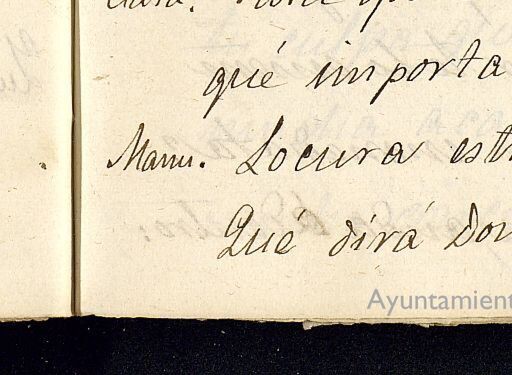 qué importa
Manu. Locura
Qué dirá Don
Ayuntamient